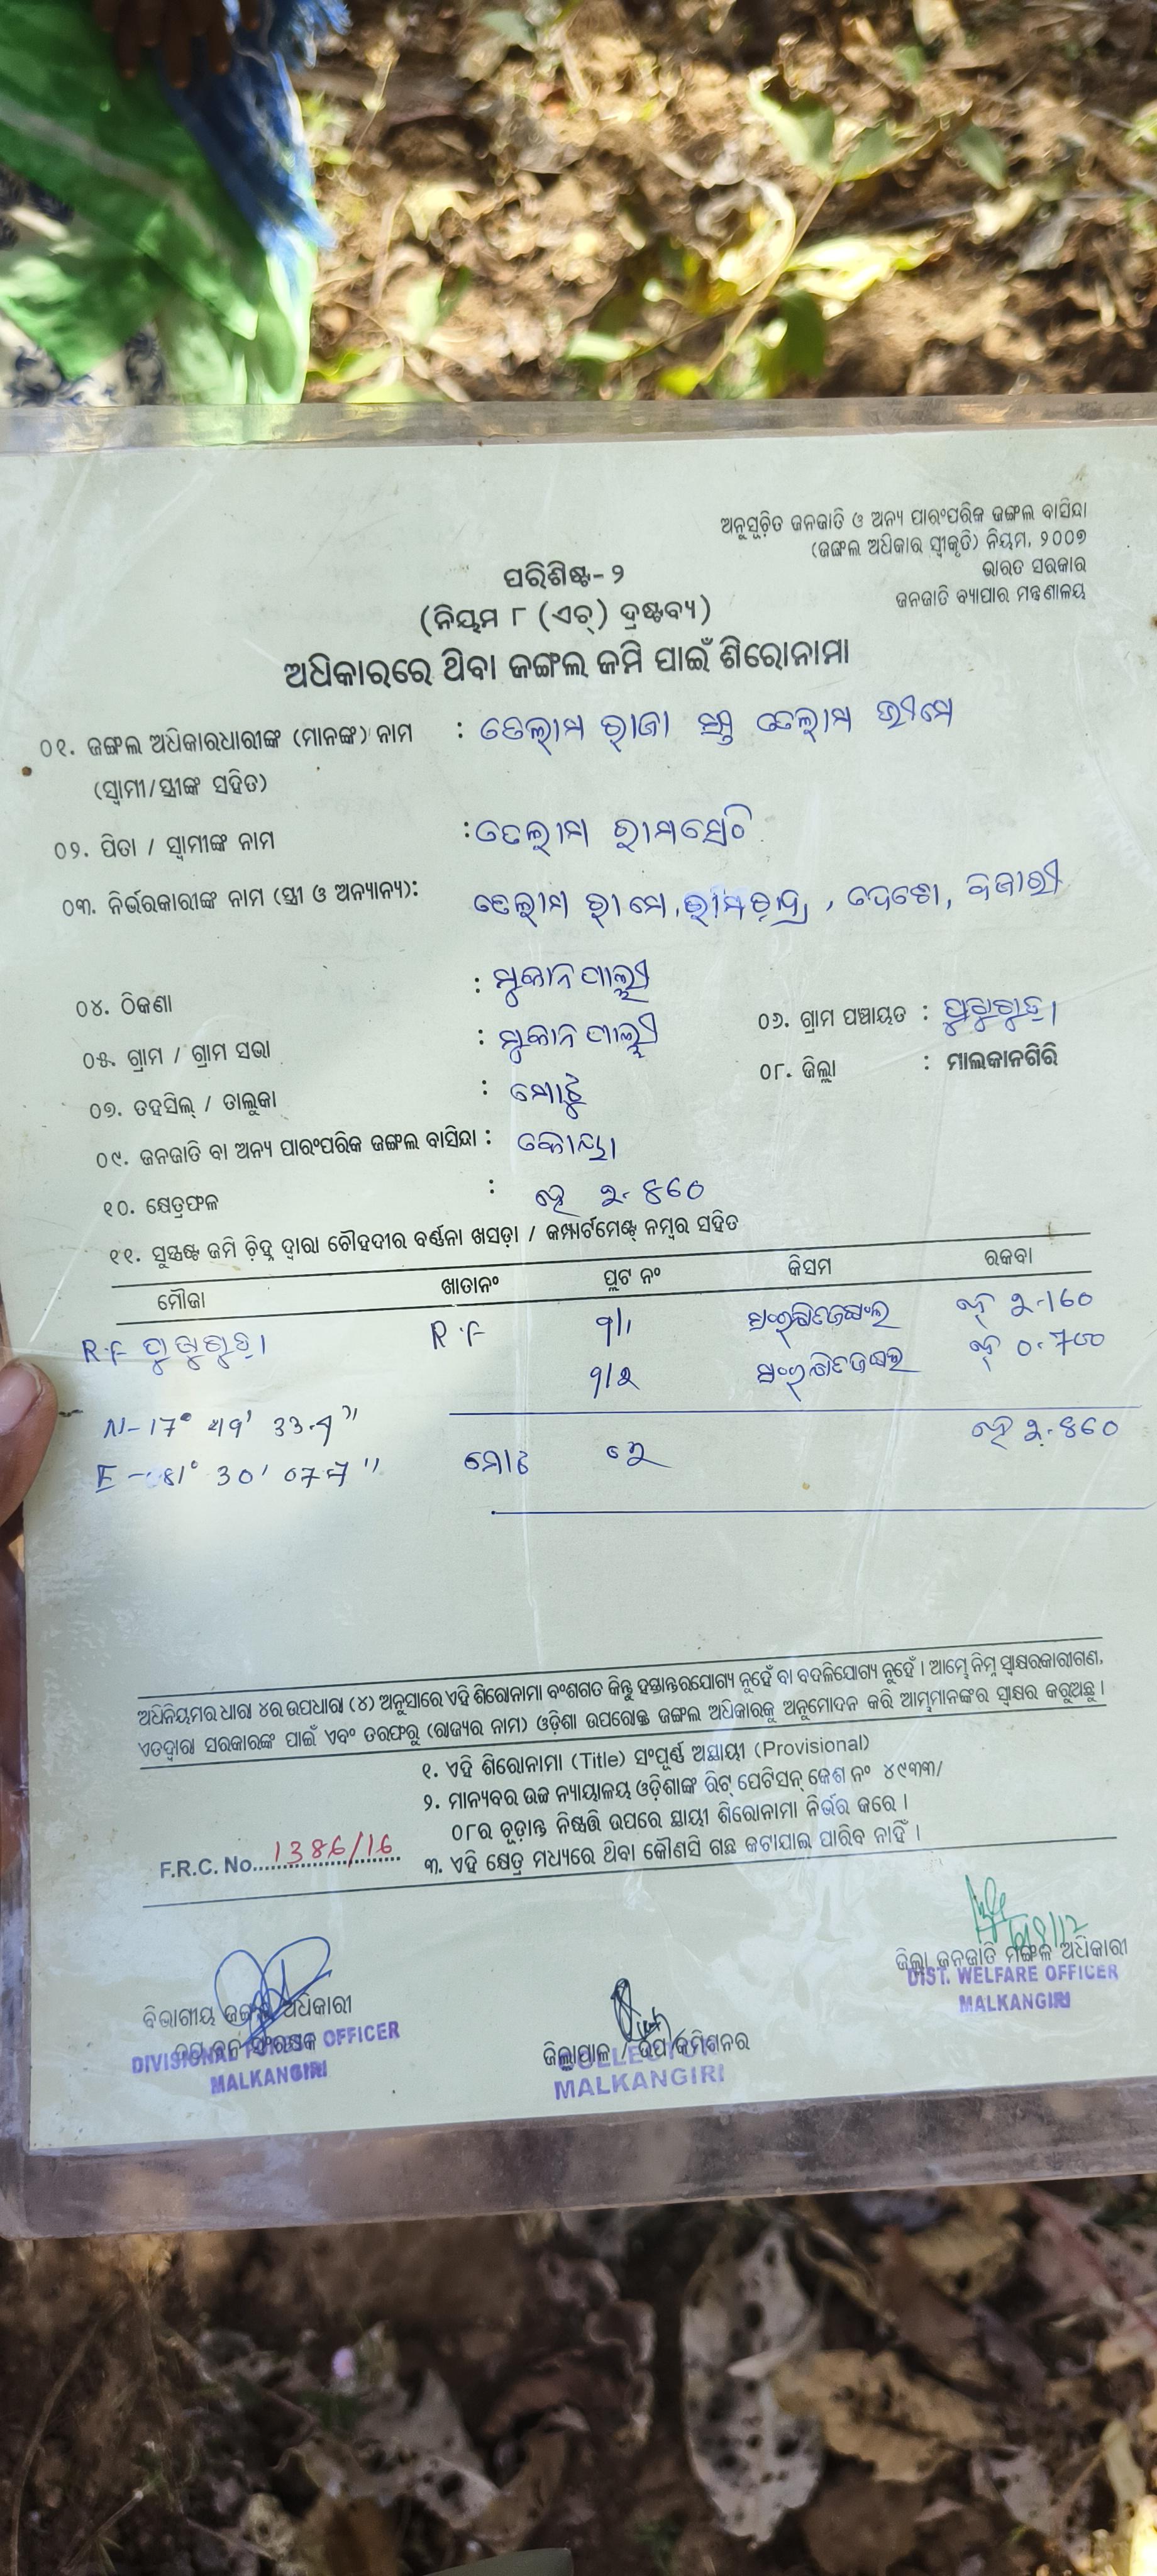 ଅନୁସୂଚିତ ଜନଜାତି ଓ ଅନ୍ୟ ପାରଂପରିକ ଜଙ୍ଗଲ ବାସିନ୍ଦା
(ଜଙ୍ଗଲ ଅଧିକାର ସ୍ୱୀକୃତି) ନିୟମ, ୨୦୦୭
ଭାରତ ସରକାର
ଜନଜାତି ବ୍ୟାପାର ମନ୍ତ୍ରଣାଳୟ
ପରିଶିଷ୍ଟ-୨
(ନିୟମ ୮ (ଏଚ୍) ଦ୍ରଷ୍ଟବ୍ୟ)
ଅଧିକାରରେ ଥିବା ଜଙ୍ଗଲ ଜମି ପାଇଁ ଶିରୋନାମା
୦୧. ଜଙ୍ଗଲ ଅଧିକାରଧାରୀଙ୍କ (ମାନଙ୍କ) ନାମ : ତେଲାମ ରାଜା ତେଲାମ ଭୀମେ
(ସ୍ୱାମୀ/ସ୍ତ୍ରୀଙ୍କ ସହିତ)
୦୨. ପିତା / ସ୍ୱାମୀଙ୍କ ନାମ : ତେଲାମ
୦୩. ନିର୍ଭରକାରୀଙ୍କ ନାମ (ସ୍ତ୍ରୀ ଓ ଅନ୍ୟାନ୍ୟ): ତେଲାମ ରାମେ,
୦୪. ଠିକଣା : ମୁକାନପାଲ୍ଲୀ
୦୫. ଗ୍ରାମ / ଗ୍ରାମ ସଭା : ମୁକାନପାଲ୍ଲୀ ୦୬. ଗ୍ରାମ ପଞ୍ଚାୟତ :
୦୭. ତହସିଲ୍ / ତାଲୁକା : ମୋଟୁ ୦୮. ଜିଲ୍ଲା : ମାଲକାନଗିରି
୦୯. ଜନଜାତି ବା ଅନ୍ୟ ପାରଂପରିକ ଜଙ୍ଗଲ ବାସିନ୍ଦା : କୋୟା
୧୦. କ୍ଷେତ୍ରଫଳ : ହେ ୨.୪60
୧୧. ସୁସ୍ପଷ୍ଟ ଜମି ଚିହ୍ନ ଦ୍ୱାରା ଚୌହଦୀର ବର୍ଣ୍ଣନା ଖସଡ଼ା / କମ୍ପାର୍ଟମେଣ୍ଟ୍ ନମ୍ବର ସହିତ
ମୌଜା ଖାତାନଂ ପ୍ଲଟ ନଂ କିସମ ରକବା
R.F R.F ୨.160
0.700
N-17° 49' 33.
E-81° 30' 07.
ମୋଟ ହେ ୨.୪60
ଅଧିନିୟମର ଧାରା ୪ର ଉପଧାରା (୪) ଅନୁସାରେ ଏହି ଶିରୋନାମା ବଂଶଗତ କିନ୍ତୁ ହସ୍ତାନ୍ତରଯୋଗ୍ୟ ନୁହେଁ ବା ବଦଳିଯୋଗ୍ୟ ନୁହେଁ । ଆମ୍ଭେ ନିମ୍ନ ସ୍ୱାକ୍ଷରକାରୀଗଣ,
ଏତଦ୍ଦ୍ୱାରା ସରକାରଙ୍କ ପାଇଁ ଏବଂ ତରଫରୁ (ରାଜ୍ୟର ନାମ) ଓଡ଼ିଶା ଉପରୋକ୍ତ ଜଙ୍ଗଲ ଅଧିକାରକୁ ଅନୁମୋଦନ କରି ଆମ୍ଭମାନଙ୍କର ସ୍ୱାକ୍ଷର କରୁଅଛୁ ।
୧. ଏହି ଶିରୋନାମା (Title) ସଂପୂର୍ଣ୍ଣ ଅସ୍ଥାୟୀ (Provisional)
୨. ମାନ୍ୟବର ଉଚ୍ଚ ନ୍ୟାୟାଳୟ ଓଡ଼ିଶାଙ୍କ ରିଟ୍ ପେଟିସନ୍ କେଶ ନଂ ୪୯୩୩/
୦୮ର ଚୂଡ଼ାନ୍ତ ନିଷ୍ପତ୍ତି ଉପରେ ସ୍ଥାୟୀ ଶିରୋନାମା ନିର୍ଭର କରେ ।
F.R.C. No. 1386/16
୩. ଏହି କ୍ଷେତ୍ର ମଧ୍ୟରେ ଥିବା କୌଣସି ଗଛ କଟାଯାଇ ପାରିବ ନାହିଁ ।
ଜିଲ୍ଲା ଜନଜାତି ମଙ୍ଗଳ ଅଧିକାରୀ
DIST. WELFARE OFFICER
MALKANGIRI
ବିଭାଗୀୟ ଜଙ୍ଗଲ ଅଧିକାରୀ
DIVISIONAL FOREST OFFICER
MALKANGIRI
ଜିଲ୍ଲାପାଳ / ଉପ କମିଶନର
COLLECTOR
MALKANGIRI